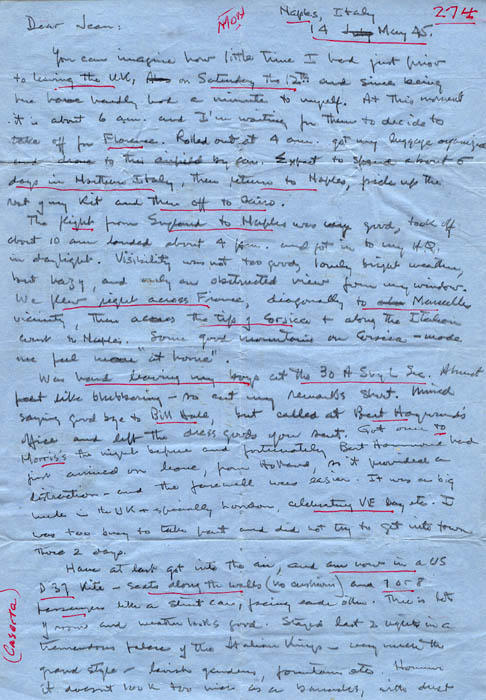 MON
Naples, Italy
274
Dear Jean:
14 July May 45.
You can imagine how little time I had just prior
to leaving the U.K, on Saturday the 12th and since being
here have hardly had a minute to myself. At this moment
it is about 6 am. and I'm waiting for them to decide to
take off for Florence. Rolled out at 4 am. got my luggage organized
and drove to this airfield by car. Expect to spend about 5
days in Northern Italy, then return to Naples, pick up the
rest of my kit and then off to Cairo.
The flight from England to Naples was very good, took off
about 10 am landed about 4 pm. and got in to my H.Q.
in daylight. Visibility was not too good, lovely bright weather,
but hazy, and only an obstructed view from my window.
We flew right across France, diagonally to Marseille
vicinity, then across the tip of Corsica + along the Italian
coast to Naples. "Some good mountains on Corsica - made
me feel at home".
Was hard leaving my boys at the 30 H Svy L Sec. Almost
felt like blubbering - so cut my remarks short. Missed
saying good bye to Bill Hall, but called at Bert Haywards
office and left the dress goods you sent. Got over to
Morris's the night before and fortunately Bert Hammond had
just arrived on leave, from Holland, so it provided a
distraction - and the farewell was easier. It was a big
week in the UK + specially London, celebrating VE day etc. I
was too busy to take part and did not try to get into town
those 2 days.
Have at last got into the air, and am now in a US
kite - seats along the walls (no cushions) and 7 or 8
passengers like a street car, facing each other. There is lots
of room and weather looks good. Stayed last 2 nights in a
(Caserta)
tremendous palace of the Italian Kings - very much the
grand style - lavish gardens, fountains etc. However
it doesn't look too nice as a barracks, with dust